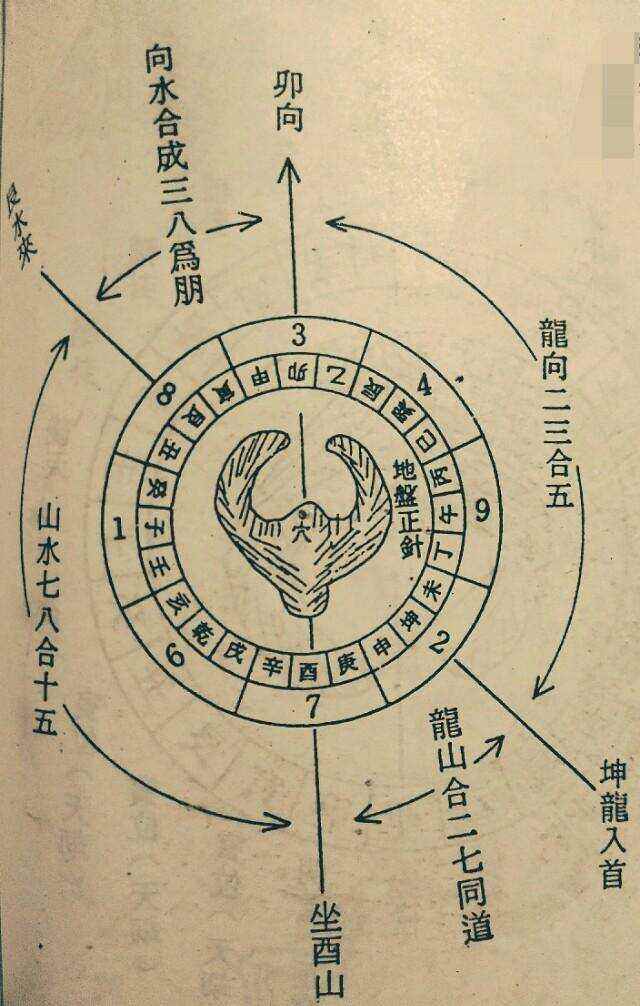 卯向
向水合成三八爲朋
艮水來
龍向二三合五
山水七八合十五
龍山合二七同道
坤龍入首
坐酉山
地盤正針
穴
3
4
9
2
7
6
1
8
卯
乙
辰
巽
巳
丙
午
丁
未
坤
申
庚
酉
辛
戌
乾
亥
壬
子
癸
丑
艮
寅
甲